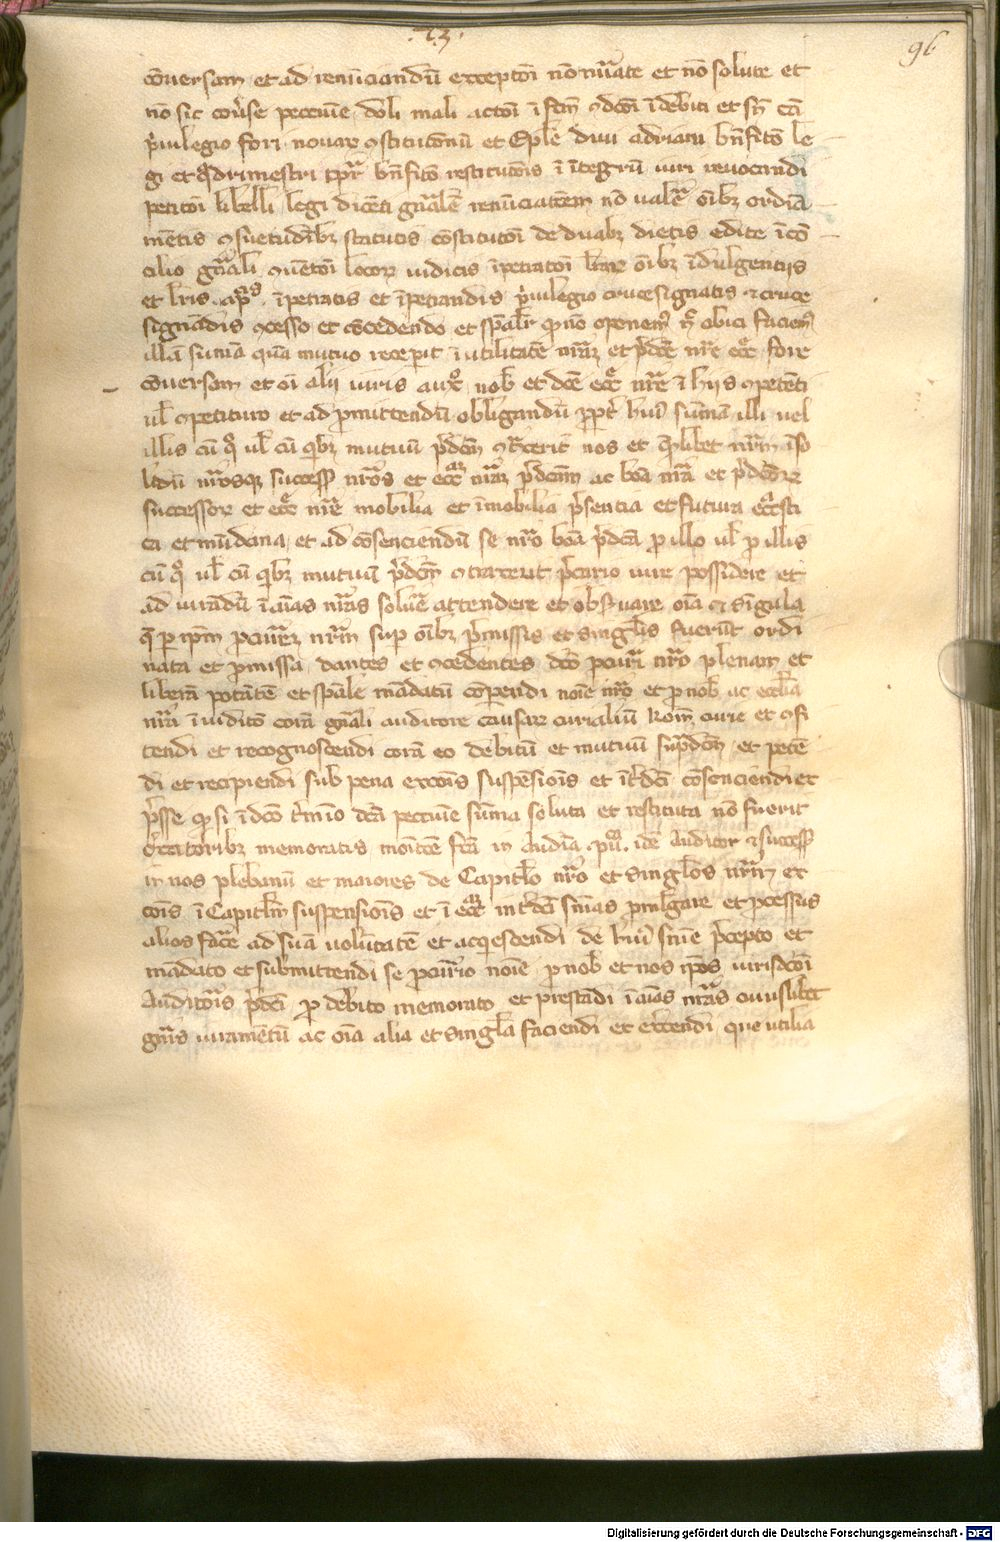 .73.
96
cōversam et ad renūciandū exceptōi nō nūate et nō solute et
nō sic cōvse peccunie doli mali actōi ī fcm ↄdcōi īdebiti et sn̄ cā
p̄uilegio fori novar ↄstitucōnū et Epl'e diui adriani bn̄fitō le
gi et q̄drimestri tpr̄ bn̄fitō restitutōis ī ītegrū iuri reuocandi
petitōi libelli legi dicēti gn̄alē renūciatōem nō valē oībꝫ ordia
mētis ↄsuetudībꝫ statutis cōstitutōi de duabꝫ dietis edite ī cō
cilio gn̄ali ↄuētōi locoꝝ iudicis īpetratōi lrāꝝ oībꝫ īdulgentijs
et lrīs ap̄ īpetratis et īpetrandis p̄uilegio crucesignatis ⁊ cruce
signādis ↄcesso et cōcedendo et sp̄alr̄ ꝙ nō oponem
illā sumā quā mutuo recepit ī utilitatē nrām et p̄dce nrē ecc̄ fore
cōuersam et oī alij iuris aux̄ nob̄ et dce ecc̄ nrē ī hijs ↄpetēti
ul̄ ↄpetituro et ad ꝓmittendū obligandū ꝓpt̄ hui' sumā illi uel
illis cū q̄ ul̄ cū qͥbꝫ mutuū p̄dcm ↄtxerit nos et q̄mlibet nrm īso
lidū nrōsqꝫ success̄ nrōs et ecc̄ nrām p̄dcam ac boā nrā et p̄dcōꝝ
successoꝝ et ecc̄ nrē mobilia et īmobilia p̄sencia et futura ecc̄sti
ca et mūdana et ad cōsenciendū se nrō boā p̄dcā ꝓ illo ul̄ ꝓ illis
cū q̄ ul̄ cū qͥbꝫ mutuū p̄dcm ↄtraxerit p̄cario iure possidere et
ad iurādū ī aīas nrās soluē attendere et obsꝰuare oīa et singula
q̄ ꝑ ip̄m ꝓcurēꝫ nrm̄ suꝑ oībꝫ p̄missis et singlis fuerūt ordi
nata et ꝓmissa dantes et ↄcedentes dcō ꝓcurī nrō plenam et
liberā potātē et sp̄ale mādatū cōparendi noīe nrō et ꝓ nob̄ ac ecclīa
nrā ī iuditō corā gn̄ali auditore causaꝝ curialiū Rom̄ curie et ↄfi
tendi et recognoscendi corā eo debitū et mutuū sup̄dcm et petē
di et recipiendi sub pena excoīs suspēsionīs et īt̄dci cōsenciendi et
p̄sse ꝙ si ī dcō t̄mīo dcā peccunie sūma soluta et restituta nō fuerit
creditoribꝫ memoratis moītōe fcā in Audīa pu. idē Auditor ⁊ success̄
ī nos plebanū et maiores de Capitlo nrō et singlos nrm̄ ex
cōis ī Capitlm suspensionīs et ī ecc̄ int̄dci snīas ꝓmlgare et ꝓcessus
alios facē ad suā voluntatē et acqͥescendi de hui' snīe p̄cepto et
mādato et submittendi se ꝓcurō noīe ꝓ nob̄ et nos ip̄os iurisdcōi
Auditoris p̄dci ꝓ debito memorato et prestādi ī aīas nrās cuiuslibet
gn̄is iuramētū ac oīa alia et singla faciendi et ex̄cendi que utilia
Digitalisierung gefördert durch die Deutsche Forschungsgemeinschaft - DFG